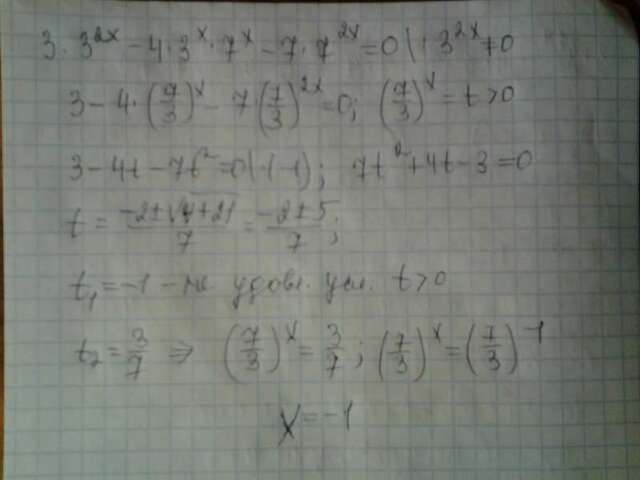 3 · 3^{2x} - 4 · 3^x · 7^x - 7 · 7^{2x} = 0 | : 3^{2x} ≠ 0
3 - 4 · (7/3)^x - 7 · (7/3)^{2x} = 0; (7/3)^x = t > 0
3 - 4t - 7t^2 = 0 | · (-1); 7t^2 + 4t - 3 = 0
t = (-2 ± √(4 + 21))/7 = (-2 ± 5)/7;
t_1 = -1 - не удовл. усл. t > 0
t_2 = 3/7 ⇒ (7/3)^x = 3/7; (7/3)^x = (7/3)^{-1}
x = -1